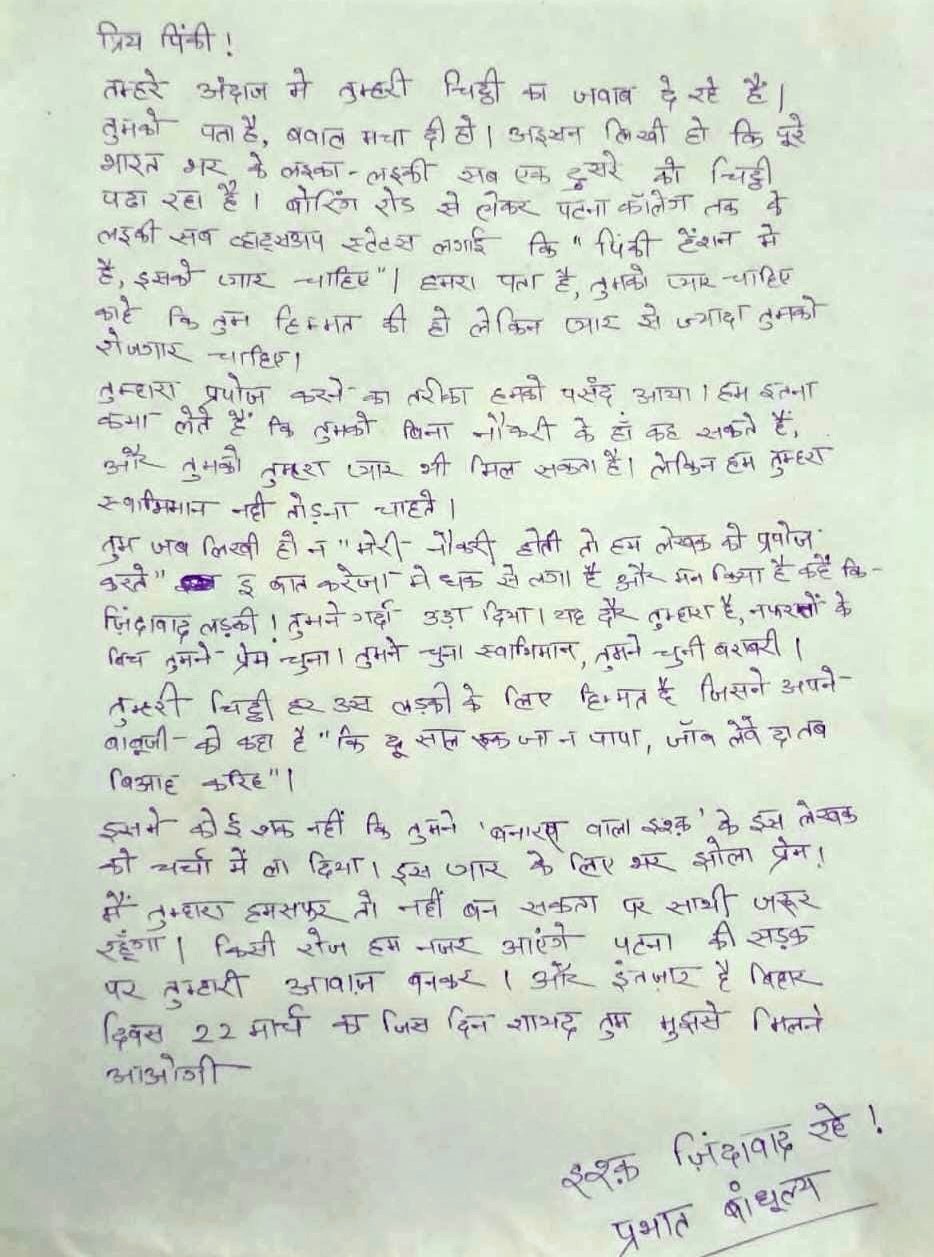 प्रिय पिंकी !
तुम्हरे अंदाज मे तुम्हरी चिट्ठी का जवाब दे रहे हैं।
तुमको पता है, बवाल मचा दी हो। अइसन लिखी हो कि पूरे
भारत भर के लइका-लइकी सब एक दुसरे को चिट्ठी
पढा रहा है। बोरिंग रोड से लेकर पटना कॉलेज तक के
लइकी सब व्हाट्सअप स्टेटस लगाई कि "पिंकी टेंशन मे
है, इसको प्यार चाहिए"। हमरा पता है, तुमको प्यार चाहिए
काहे कि तुम हिम्मत की हो लेकिन प्यार से ज्यादा तुमको
रोजगार चाहिए।
तुम्हारा प्रपोज करने का तरीका हमको पसंद आया। हम इतना
कमा लेते हैं कि तुमको बिना नौकरी के हाँ कह सकते हैं,
और तुमको तुम्हरा प्यार भी मिल सकता है। लेकिन हम तुम्हरा
स्वाभिमान नही तोड़ना चाहते।
तुम जब लिखी हो न "मेरी नौकरी होती तो हम लेखक को प्रपोज
करते" इ बात करेजा मे धक से लगा है और मन किया है कहें कि-
ज़िंदाबाद लड़की! तुमने गर्दा उड़ा दिया। यह दौर तुम्हारा है, नफरतों के
बिच तुमने प्रेम चुना। तुमने चुना स्वाभिमान, तुमने चुनी बराबरी।
तुम्हरी चिट्ठी हर उस लड़की के लिए हिम्मत है जिसने अपने
बाबूजी को कहा है "कि दू साल रुक जा न पापा, जॉब लेवे दा तब
बिआह करिह"।
इसमे कोई शक नहीं कि तुमने 'बनारस वाला इश्क़' के इस लेखक
को चर्चा में ला दिया। इस प्यार के लिए भर झोला प्रेम!
मैं तुम्हारा हमसफर तो नहीं बन सकता पर साथी जरूर
रहूँगा। किसी रोज हम नजर आएंगे पटना की सड़क
पर तुम्हारी आवाज़ बनकर। और इंतज़ार है बिहार
दिवस 22 मार्च का जिस दिन शायद तुम मुझसे मिलने
आओगी
इश्क़ ज़िंदाबाद रहे!
प्रभात बांधुल्य